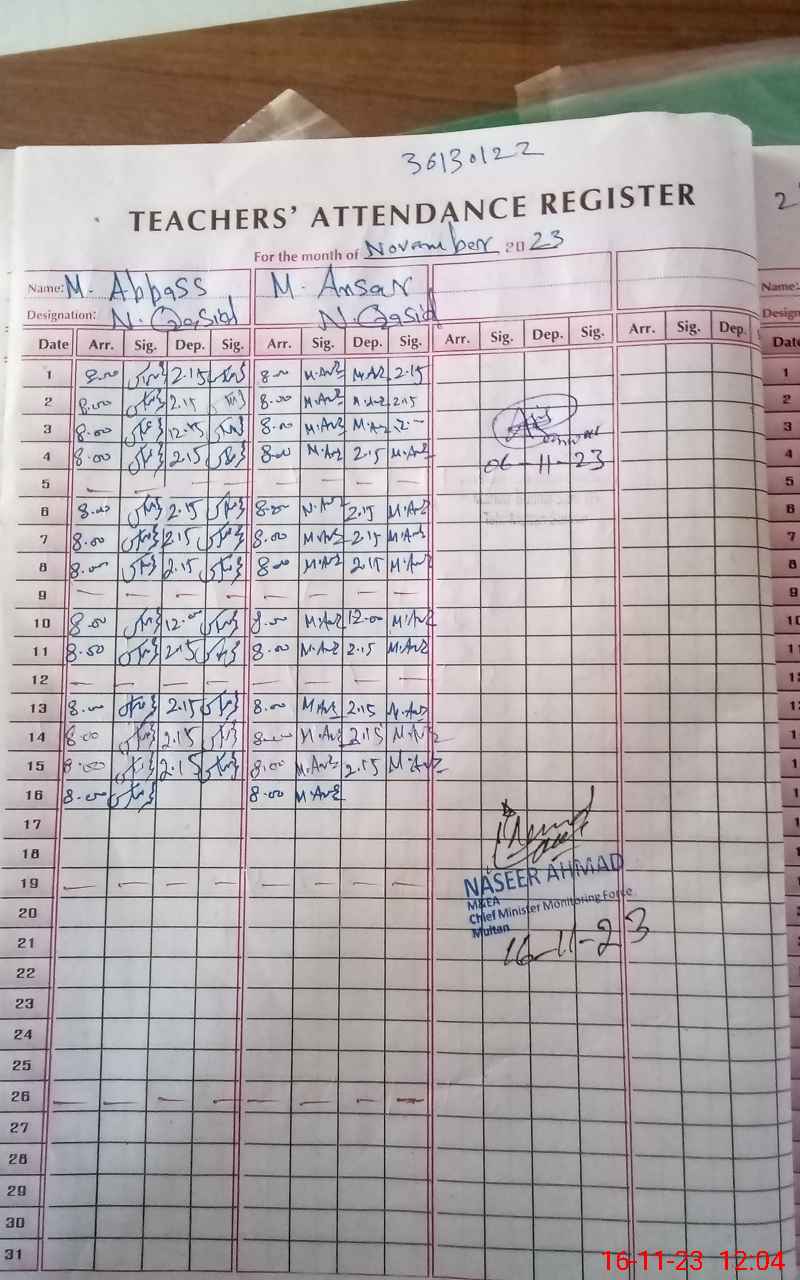 36130122
TEACHERS' ATTENDANCE REGISTER
For the month of November 2023
Name: M. Abbass M. Ansar
Designation: N. Qasid N. Qasid
Date Arr. Sig. Dep. Sig. Arr. Sig. Dep. Sig. Arr. Sig. Dep. Sig. Arr. Sig. Dep.
1 8.00 2.15 8.00 M.Anz M.Anz 2.15
2 8.00 2.15 8.00 M.Anz M.Anz 2.15
3 8.00 12.15 8.00 M.Anz M.Anz
4 8.00 2.15 8.00 M.Anz 2.15 M.Anz
06-11-23
5 — — — — — — — —
6 8.00 2.15 8.00 M.Anz 2.15 M.Anz
7 8.00 2.15 8.00 M.Anz 2.15 M.Anz
8 8.00 2.15 8.00 M.Anz 2.15 M.Anz
9 — — — — — — — —
10 8.00 12.00 8.00 M.Anz 12.00 M.Anz
11 8.00 2.15 8.00 M.Anz 2.15 M.Anz
12 — — — — — — — —
13 8.00 2.15 8.00 M.Anz 2.15 M.Anz
14 8.00 2.15 8.00 M.Anz 2.15 M.Anz
15 8.00 2.15 8.00 M.Anz 2.15 M.Anz
16 8.00 8.00 M.Anz
17
18
19 — — — — — — — —
NASEER AHMAD
M&EA
Chief Minister Monitoring Force
Multan
16-11-23
20
21
22
23
24
25
26 — — — — — — — —
27
28
29
30
31
Name:
Design
Date
1
2
3
4
5
6
7
8
9
16-11-23 12:04